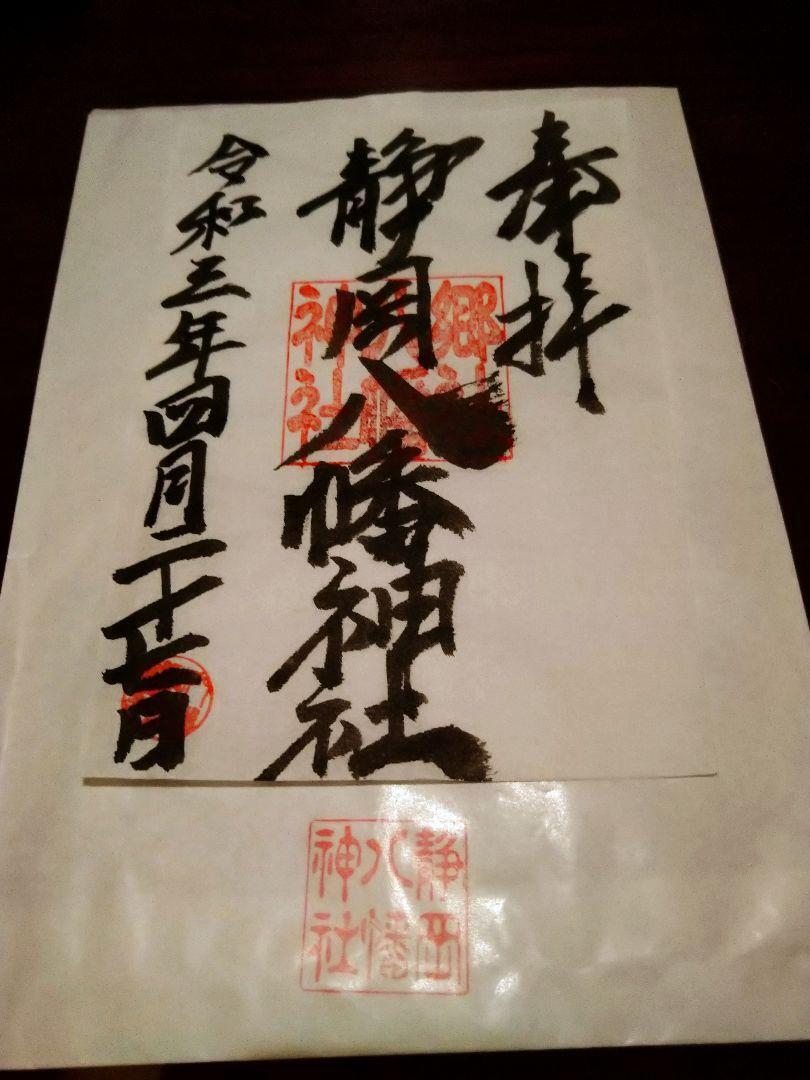 奉拝
静岡八幡神社
令和三年四月二十七日
郷社
八幡
神社
静岡
八幡
神社